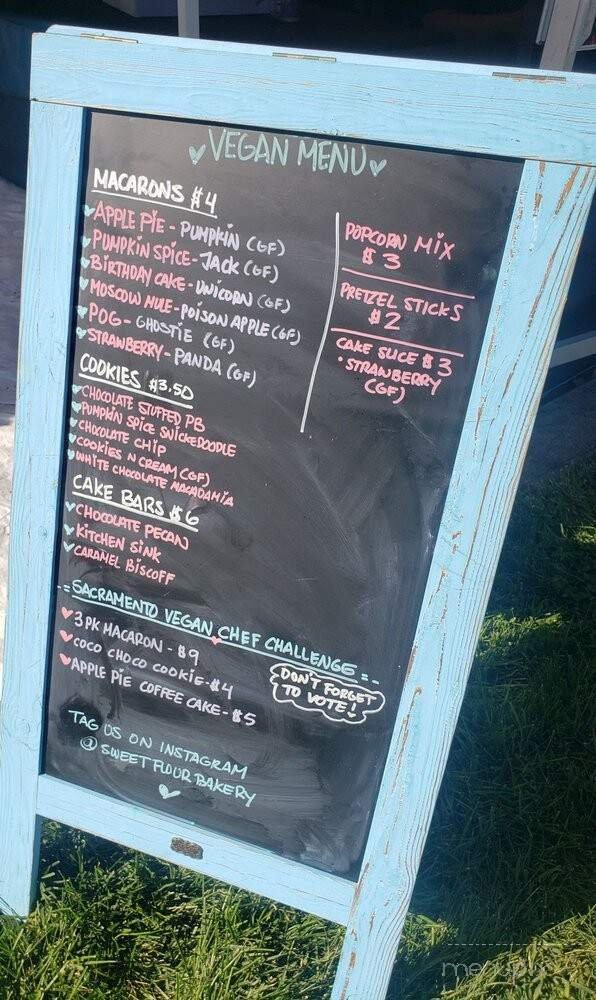 VEGAN MENU
MACARONS $4
APPLE PIE - PUMPKIN (GF)
PUMPKIN SPICE - JACK (GF)
BIRTHDAY CAKE - UNICORN (GF)
MOSCOW MULE - POISON APPLE (GF)
POG - GHOSTIE (GF)
STRAWBERRY - PANDA (GF)
COOKIES $3.50
CHOCOLATE STUFFED PB
PUMPKIN SPICE SNICKERDOODLE
CHOCOLATE CHIP
COOKIES N CREAM (GF)
WHITE CHOCOLATE MACADAMIA
CAKE BARS $6
CHOCOLATE PECAN
KITCHEN SINK
CARAMEL BISCOFF
POPCORN MIX
$3
PRETZEL STICKS
$2
CAKE SLICE $3
• STRAWBERRY
(GF)
-= SACRAMENTO VEGAN CHEF CHALLENGE =-
3 PK MACARON - $9
COCO CHOCO COOKIE - $4
APPLE PIE COFFEE CAKE - $5
DON'T FORGET
TO VOTE!
TAG US ON INSTAGRAM
@ SWEETFLOURBAKERY